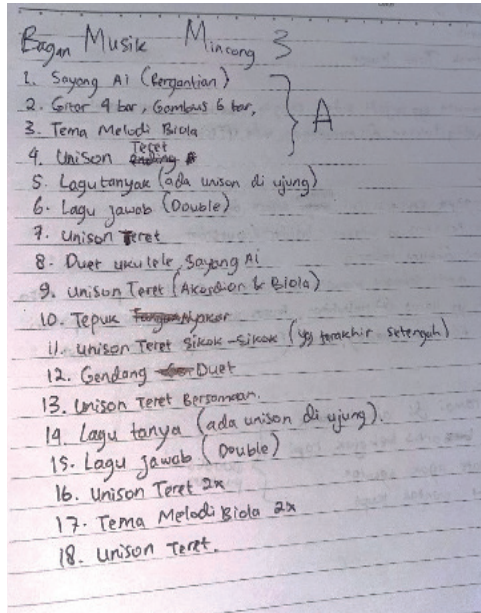 Bagan Musik Mincong 3
1. Sayang Ai (Bergantian)
2. Gitar 4 bar, Gambus 6 bar,
3. Tema Melodi Biola
A
4. Unison Teret
5. Lagu tanyak (ada unison di ujung)
6. Lagu jawab (Double)
7. Unison Teret
8. Duet ukulele, Sayang Ai
9. Unison Teret (Akordion & Biola)
10. Tepuk
11. Unison Teret Sikok-sikok (yg terakhir setengah)
12. Gendang Duet
13. Unison Teret Bersamaan.
14. Lagu tanya (ada unison di ujung).
15. Lagu jawab (Double)
16. Unison Teret 2x
17. Tema Melodi Biola 2x
18. Unison Teret.